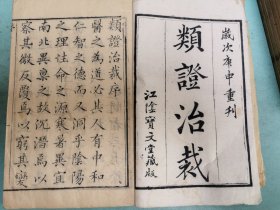 歲次庚申重刋
類證治裁
江陰寳文堂藏版
類證治裁序
醫之為道必其人有中和
仁智之德而又洞乎陰陽
之理性命之源寒暑異宜
南北異稟之故沉潛焉以
察其微反覆焉以窮其變